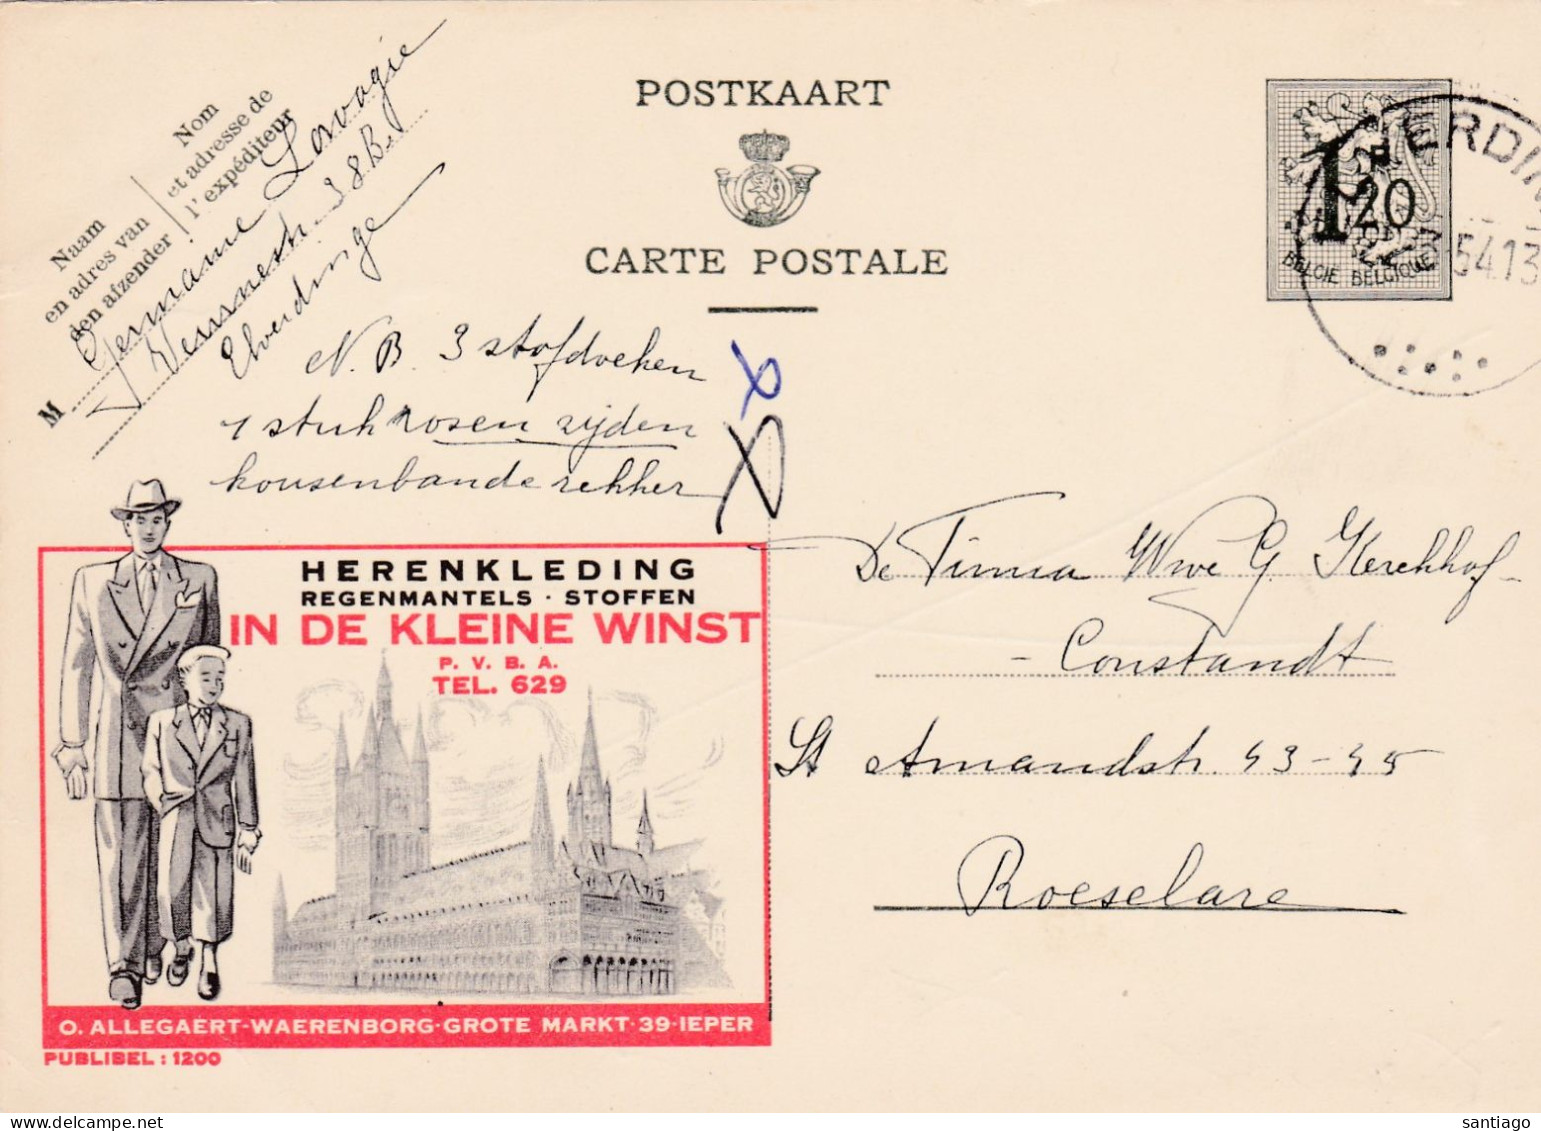 POSTKAART
CARTE POSTALE
Nom
et adresse de
l'expéditeur
Naam
en adres van
den afzender
M Germaine Lavagie
38B
Elverdinge
N.B. 3 stofdoeken
1 stuk rosen zijden
kousenbande rekker
1F20
BELGIE BELGIQUE
ERDIN
54 13
De Firma Wwe G Kerckhof-
- Constandt
St Amandstr. 43-45
Roeselare
HERENKLEDING
REGENMANTELS · STOFFEN
IN DE KLEINE WINST
P. V. B. A.
TEL. 629
O. ALLEGAERT-WAERENBORG-GROTE MARKT·39·IEPER
PUBLIBEL : 1200
santiago